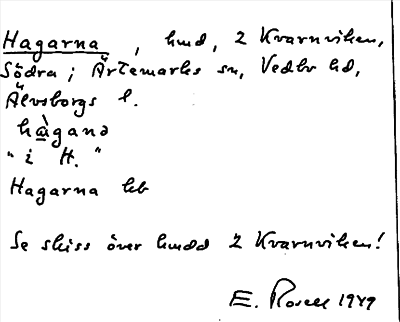 Hagarna, hmd, 2 Kvarnviken,
Södra; Ärtemarks sn, Vedbo hd,
Älvsborgs l.
hàganə
"i H."
Hagarna hb
Se skiss över hmdd 2 Kvarnviken!
E. Rosell 1949